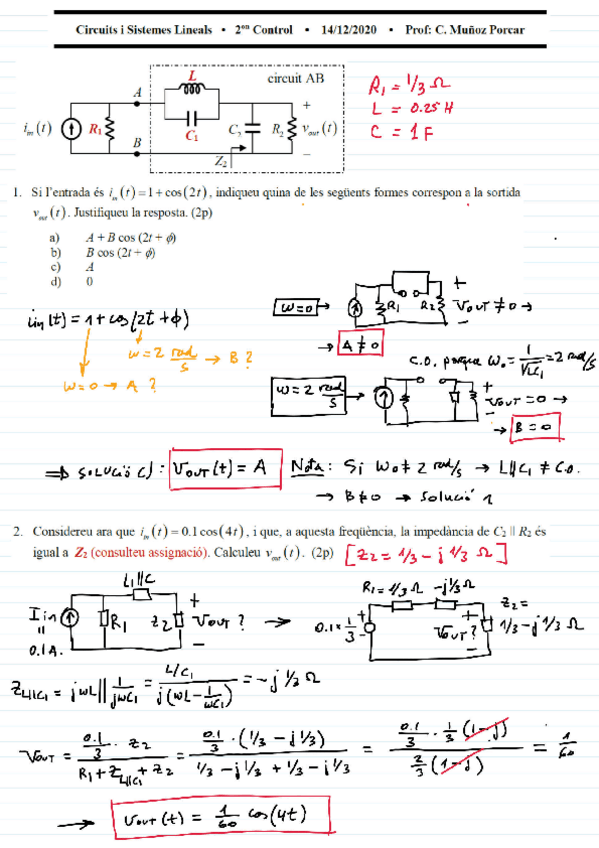 Circuits i Sistemes Lineals • 2on Control • 14/12/2020 • Prof: C. Muñoz Porcar
L
circuit AB
A
+
i_in(t)
R1
C1
C2
R2
v_out(t)
B
Z2
−
R1 = 1/3 Ω
L = 0.25 H
C = 1 F
1. Si l'entrada és i_in(t) = 1 + cos(2t), indiqueu quina de les següents formes correspon a la sortida
v_out(t). Justifiqueu la resposta. (2p)
a) A + B cos (2t + ϕ)
b) B cos (2t + ϕ)
c) A
d) 0
iin(t) = 1 + cos(2t + ϕ)
w = 2 rad/s → B ?
w = 0 → A ?
w = 0 →
R1
R2
+
VOUT ≠ 0 →
−
→ A ≠ 0
C.O. porque w0 = 1/√LC1 = 2 rad/s
w = 2 rad/s →
+
VOUT = 0 →
−
→ B = 0
⇒ SOLUCIÓ c) : VOUT(t) = A
Nota: Si w0 ≠ 2 rad/s → L||C1 ≠ C.O.
→ B ≠ 0 → Solució 1
2. Considereu ara que i_in(t) = 0.1 cos(4t), i que, a aquesta freqüència, la impedància de C2 || R2 és
igual a Z2 (consulteu assignació). Calculeu v_out(t). (2p) [Z2 = 1/3 − j 1/3 Ω]
L1||C
Iin
=
0.1 A.
R1
Z2
+
VOUT ?
−
→
R1 = 1/3 Ω
−j1/3 Ω
0.1 × 1/3
+
−
+
VOUT ?
−
Z2 =
1/3 − j 1/3 Ω
ZL||C1 = jwL || 1/jwC1 = L/C1 / j(wL − 1/wC1) = −j 1/3 Ω
VOUT = 0.1/3 · Z2 / R1 + ZL||C1 + Z2 = 0.1/3 · (1/3 − j 1/3) / 1/3 − j 1/3 + 1/3 − j 1/3 = 0.1/3 · 1/3 (1−j) / 2/3 (1−j) = 1/60
→ VOUT(t) = 1/60 cos(4t)